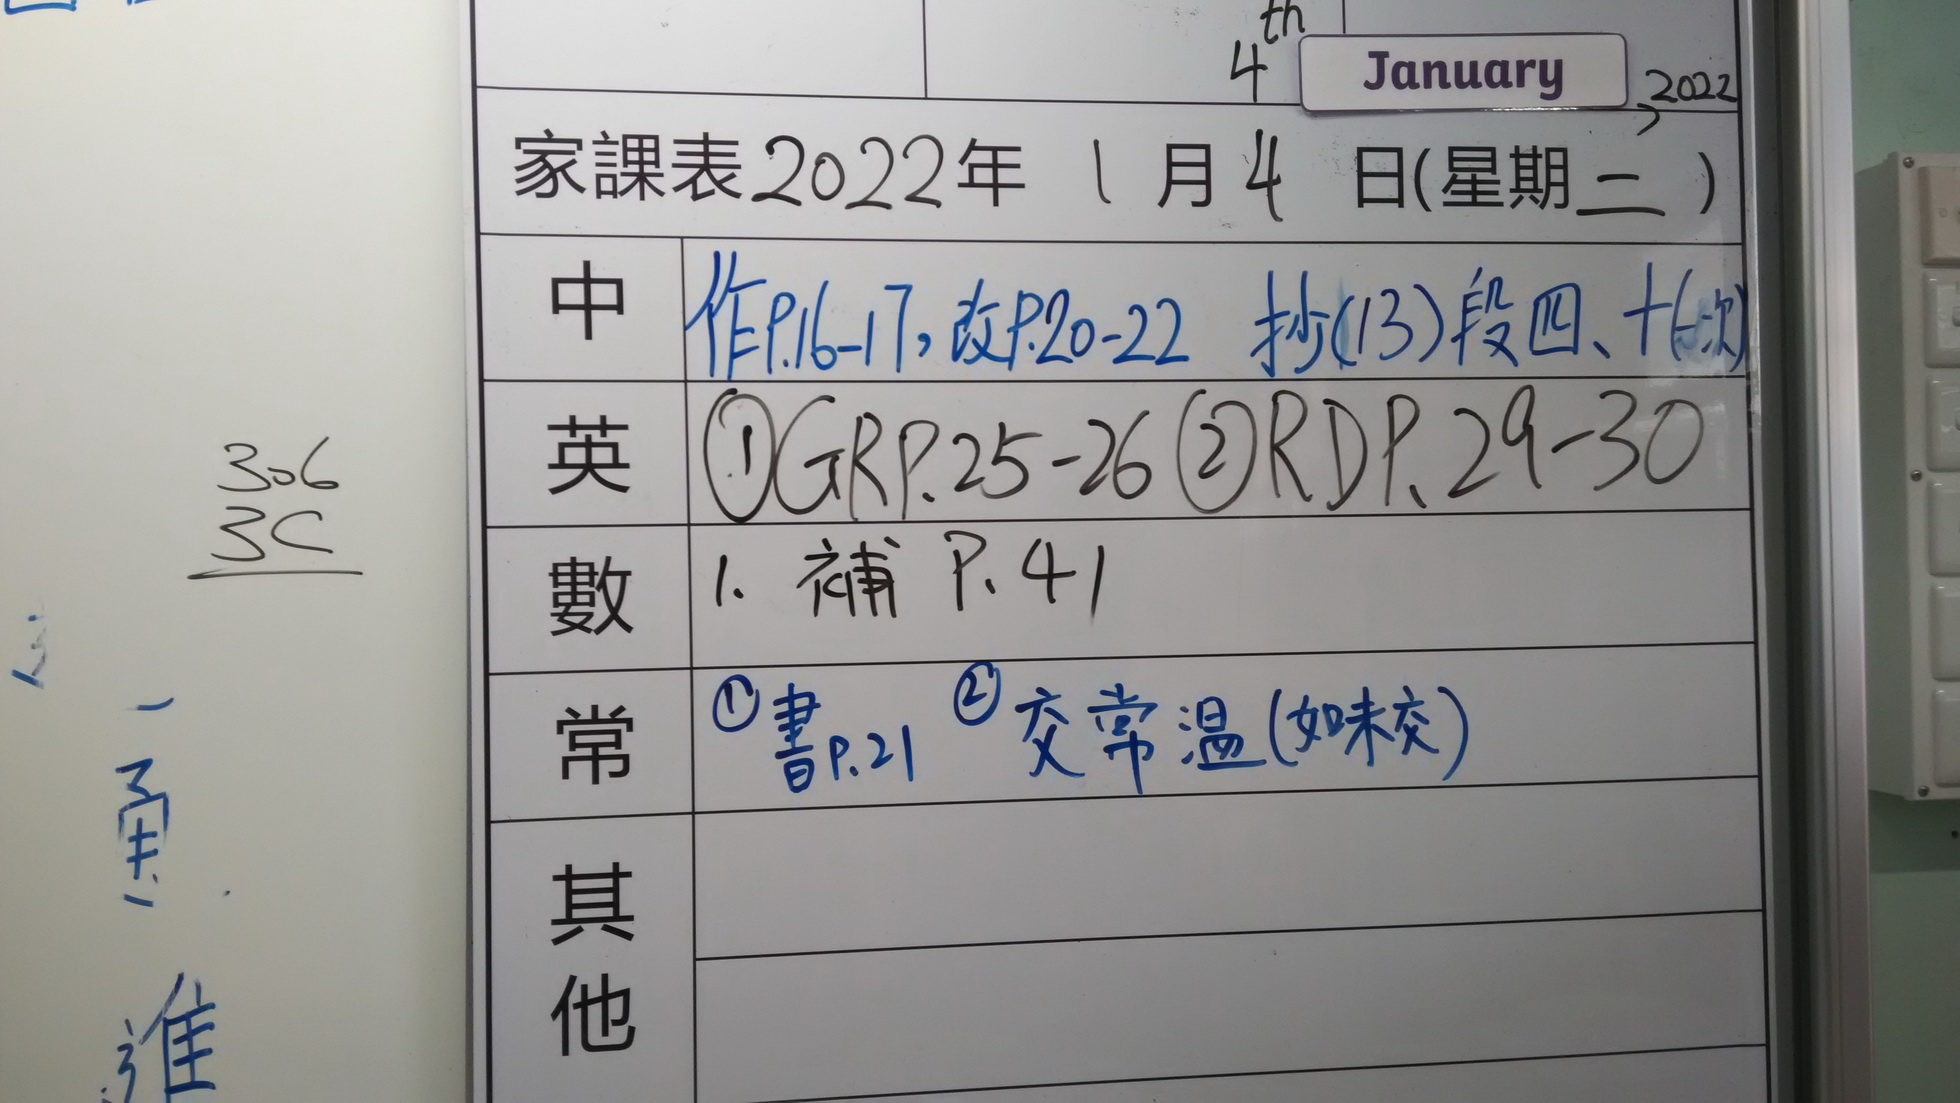 4th January, 2022
家課表2022年 1月4日(星期二)
中 作P.16-17，改P.20-22 抄(13)段四、十(一次)
英 ①GRP.25-26 ②RDP.29-30
數 1. 補 P.41
常 ①書P.21 ②交常溫(如未交)
其他
306
3C
進